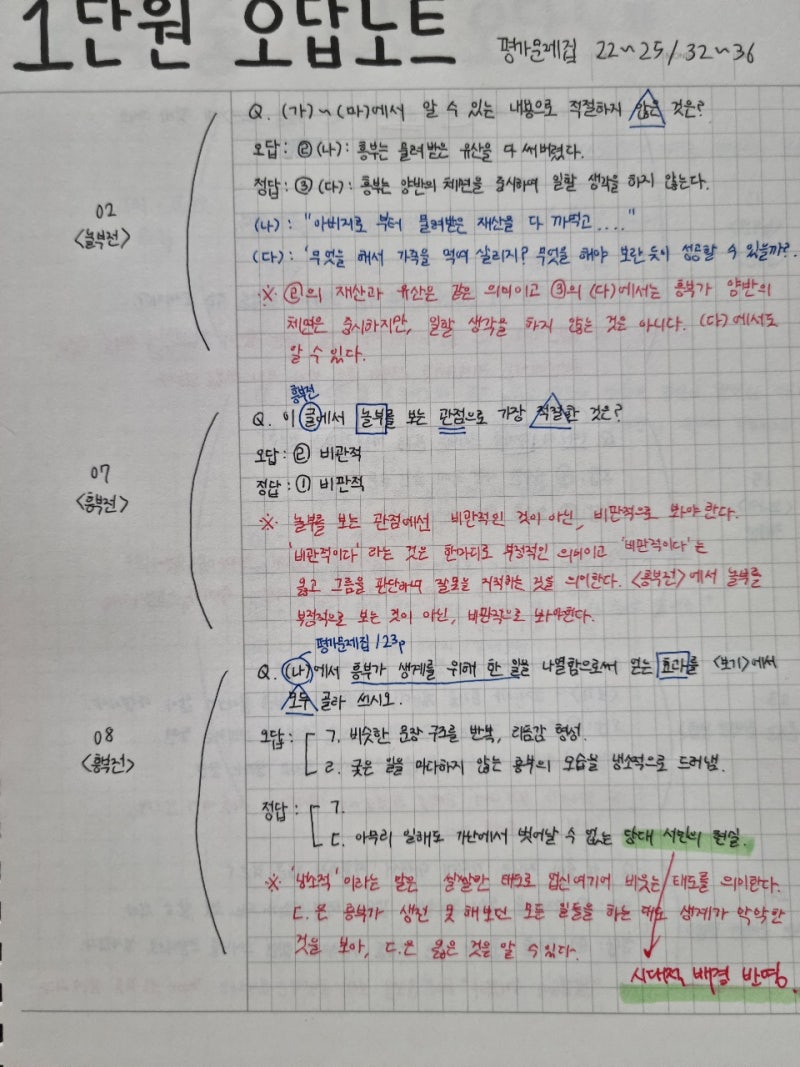 1단원 오답노트 평가문제집 22~25/32~36
Q. (가)~(마)에서 알 수 있는 내용으로 적절하지 않은 것은?
오답: ②(나): 흥부는 물려받은 유산을 다 써버렸다.
정답: ③(다): 흥부는 양반의 체면을 중시하여 일할 생각을 하지 않는다.
02
<놀부전>
(나): "아버지로 부터 물려받은 재산을 다 까먹고...."
(다): '무엇을 해서 가족을 먹여 살리지? 무엇을 해야 보란 듯이 성공할 수 있을까?.
※ ②의 재산과 유산은 같은 의미이고 ③의 (다)에서는 흥부가 양반의
체면은 중시하지만, 일할 생각을 하지 않는 것은 아니다. (다)에서도
알 수 있다.
흥부전
Q. 이 글에서 놀부를 보는 관점으로 가장 적절한 것은?
오답: ② 비관적
07
<흥부전>
정답: ① 비판적
※ 놀부를 보는 관점에선 비관적인 것이 아닌, 비판적으로 봐야 한다.
'비관적이다' 라는 것은 한마디로 부정적인 의미이고 '비판적이다'는
옳고 그름을 판단하여 잘못을 지적하는 것을 의미한다. <흥부전>에서 놀부를
부정적으로 보는 것이 아닌, 비판적으로 봐야한다.
평가문제집 123p
Q. (나)에서 흥부가 생계를 위해 한 일을 나열함으로써 얻는 효과를 <보기>에서
모두 골라 쓰시오.
08
<흥부전>
오답: ㄱ. 비슷한 문장 구조를 반복, 리듬감 형성.
ㄹ. 궂은 일을 마다하지 않는 흥부의 모습을 냉소적으로 드러냄.
정답: ㄱ.
ㄷ. 아무리 일해도 가난에서 벗어날 수 없는 당대 서민의 현실.
※ '냉소적'이라는 말은 쌀쌀한 태도로 업신여기어 비웃는 태도를 의미한다.
ㄷ.은 흥부가 생전 못 해보던 모든 일들을 하는 데도 생계가 막막한
것을 보아, ㄷ.은 옳은 것을 알 수 있다.
시대적 배경 반영.